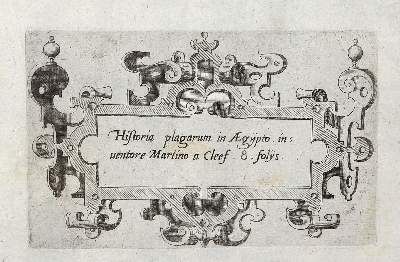 Historia plagarum in Ægypto. in:
uentore Martino a Cleef 8. folys.